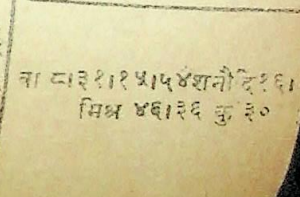 वा ८।३१।१५।५४शनौ दि१६।
मिश्र ४६।३६ कु ३०